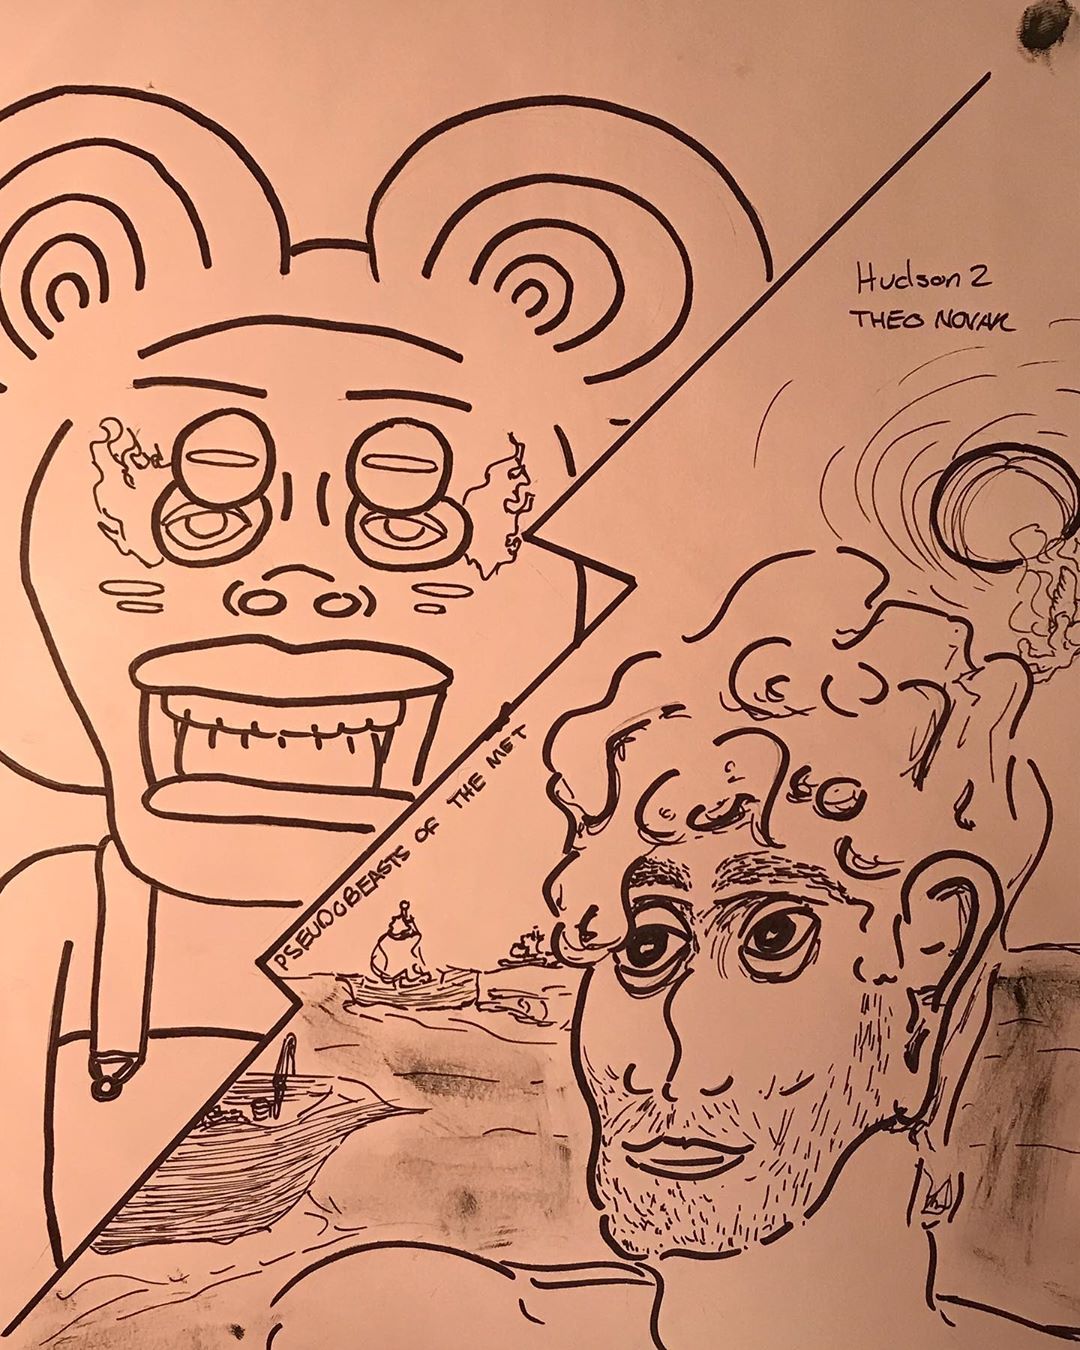 Hudson 2
THEO NOVAK
PSEUDOBEASTS OF THE MET